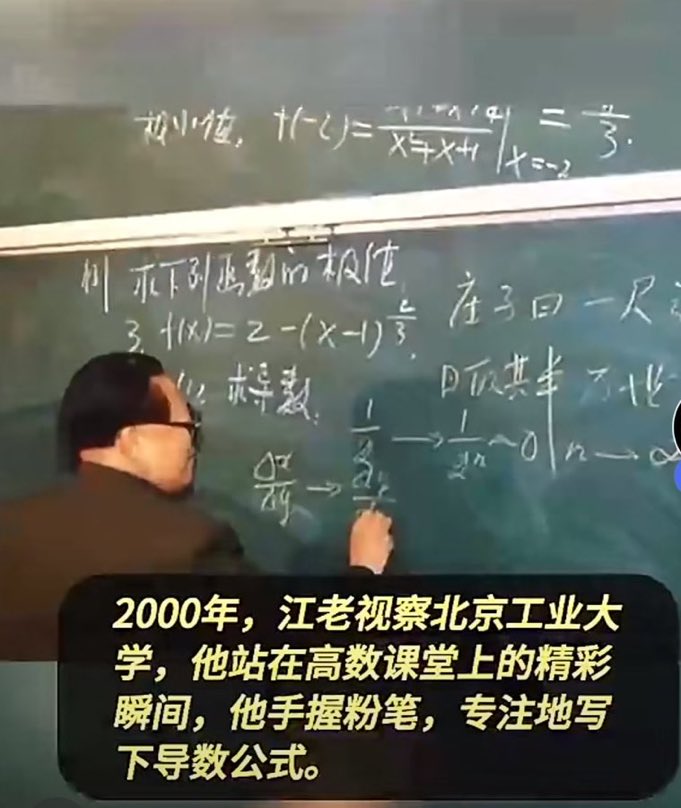 极小值, f(-2)= x²+x+1 | x=-2 = 3.
例 求下列函数的极值
3. f(x)=2-(x-1)^2/3.
庄子曰 一尺
求导数.
日取其半 万世
1/2 → 1/2ⁿ → 0 | n → ∞
Δx/Δy →
2000年，江老视察北京工业大
学，他站在高数课堂上的精彩
瞬间，他手握粉笔，专注地写
下导数公式。